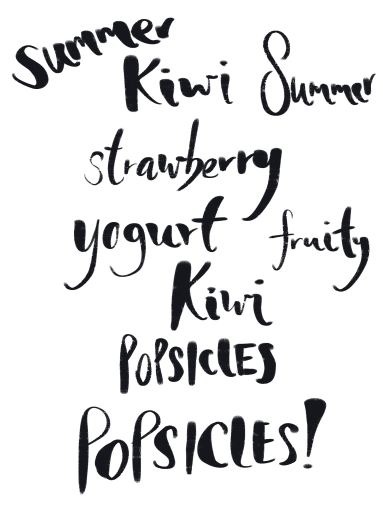 Summer
Kiwi Summer
strawberry
yogurt fruity
Kiwi
POPSICLES
POPSICLES!